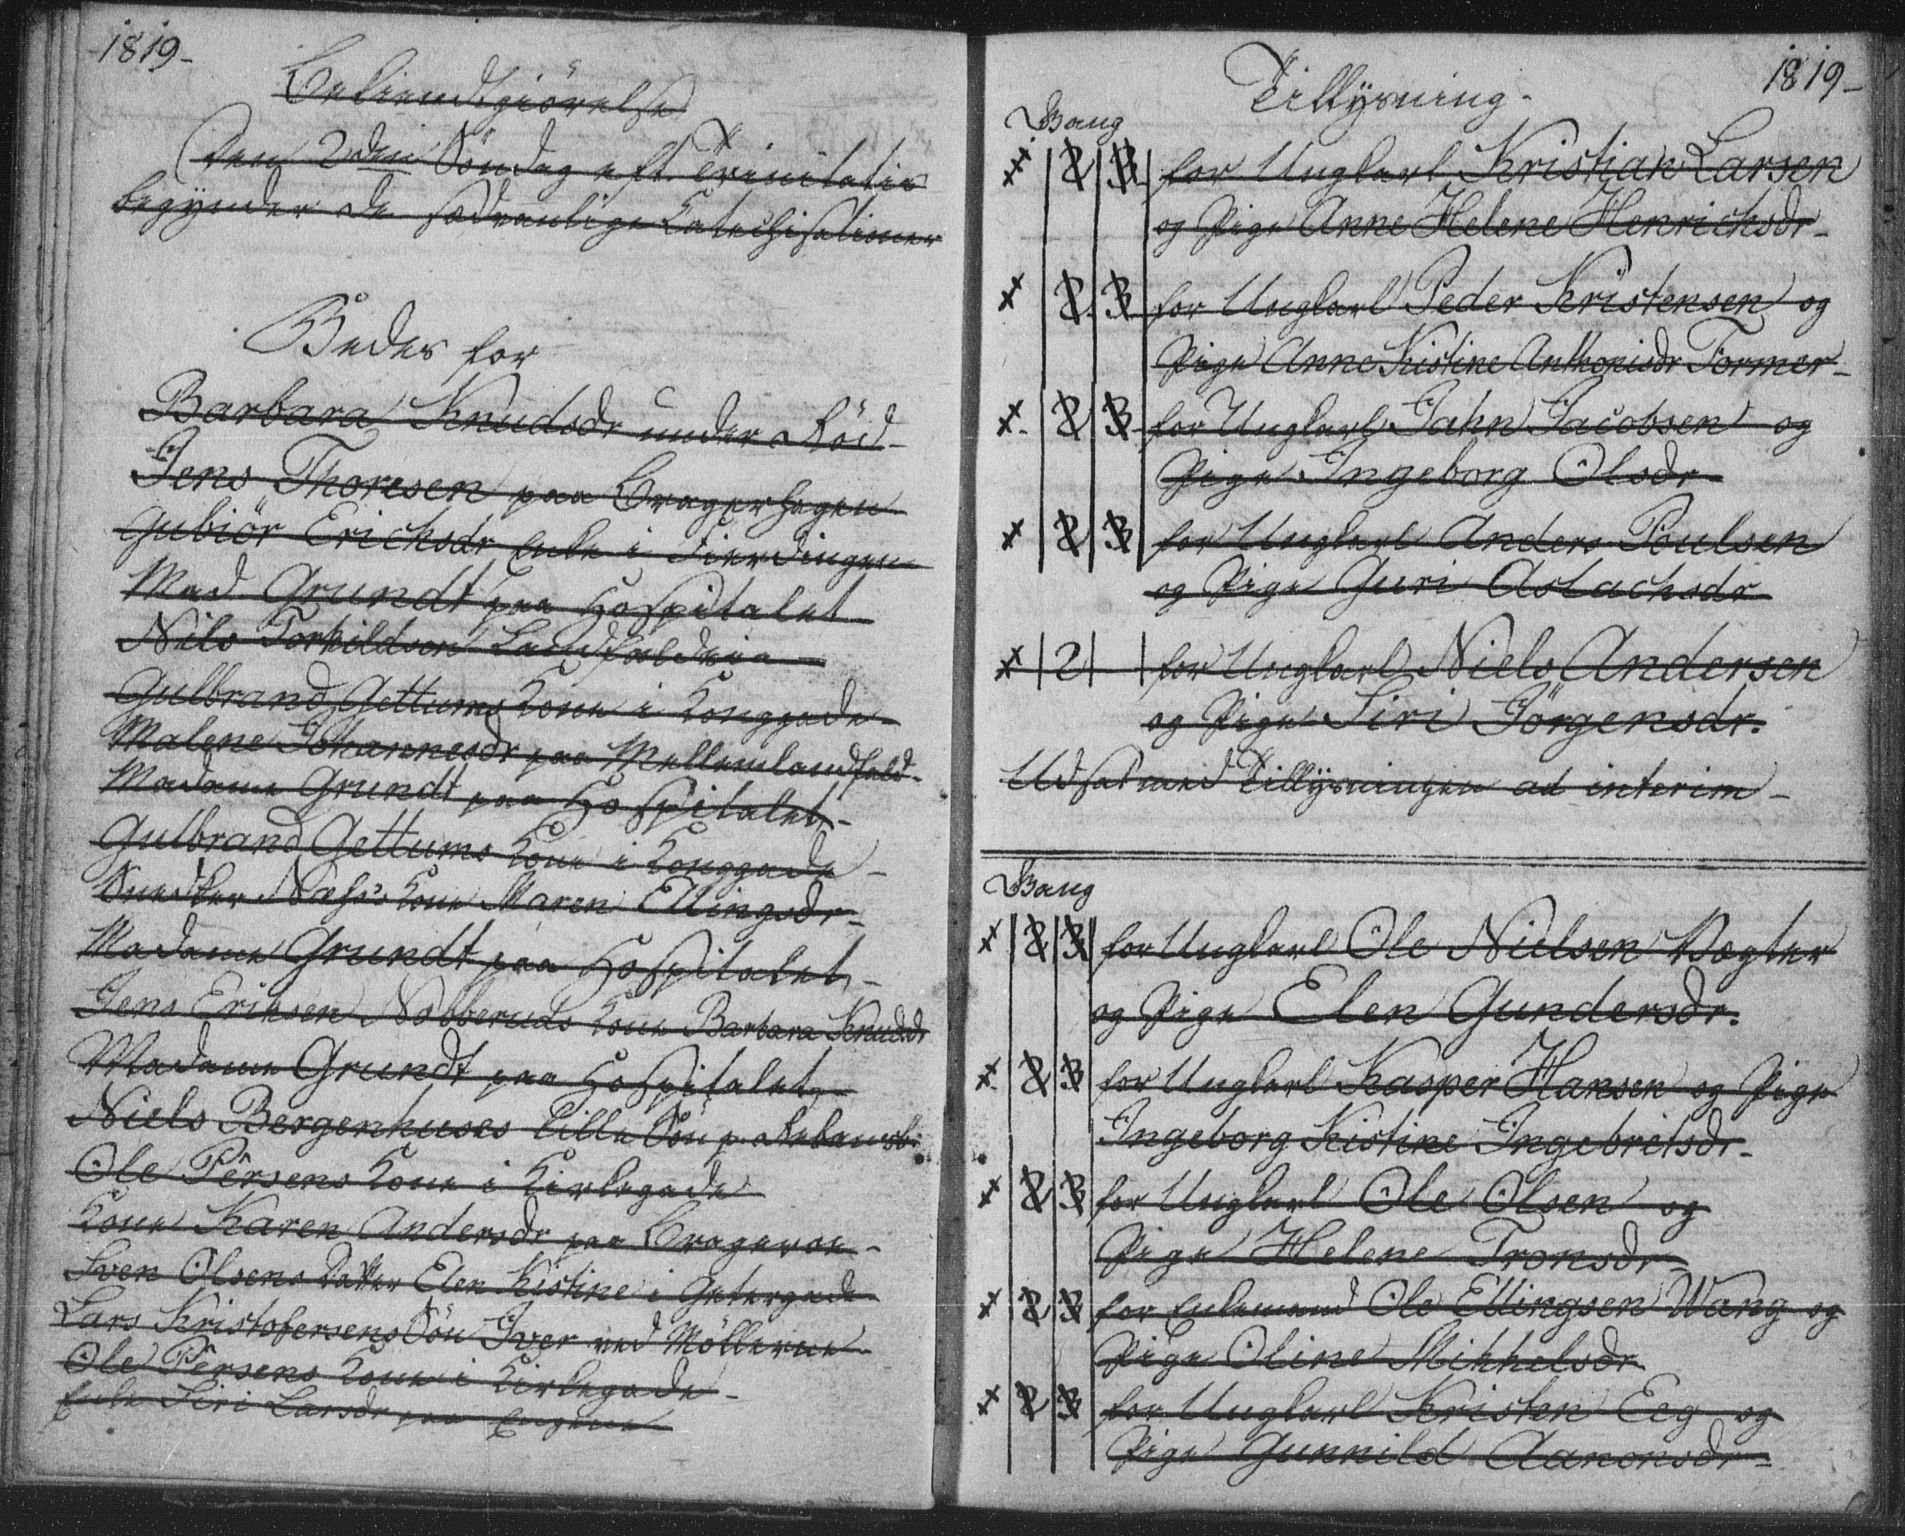 1819-
Bekiendtgiörelse
Den 2den Söndag eft. Trinitatis
begynder de sædvanlige Catechisationer
Bedes for
Barbara Knudsdr under Röd-
Jens Thoresen paa Bragerhagen
Gubiör Erichsdr Enke i Fierdingen
Mad Grundt paa Hospitalet
Nils Torkildsen Landfalderie
Gulbrand Gettums Kone i Konggade-
Malene Johannesdr paa Mellemlandfald-
Madame Grundt paa Hospitalet-
Gulbrand Gettums Kone i Konggade-
Snedker Næss's Kone Maren Ellingsdr-
Madame Grundt paa Hospitalet-
Jens Eriksen Nobberuds Kone Barbara Knudsdr
Madame Grundt paa Hospitalet-
Niels Bergenhuses lille Sön p.
Ole Persens Kone i Kirkegade
Kone Karen Andersdr paa Bragerøe-
Sven Olsens Datter Elen Kistine i Getergade
Lars Kristofersens Sön Iver ved Möllerne
Ole Persens Kone i Kirkegade-
Enke Siri Larsdr paa Engene
1819-
Tillysning-
Bang
2 3 for Ungkarl Kristian Larsen
og Pige Anne Helene Henrichsdr-
2 3 for Ungkarl Peder Kristensen og
Pige Anne Kistine Anthonisdr Tormer-
2 3 for Ungkarl Jahn Jacobsen og
Pige Ingeborg Olsdr-
2 3 for Ungkarl Anders Poulsen
og Pige Guri Aslachsdr
2 for Ungkarl Niels Andersen
og Pige Siri Jörgensdr.
Udsat med Tillysningen ad interim-
Bang
2 3 for Ungkarl Ole Nielsen Vægter
og Pige Elen Gundersdr.
2 3 for Ungkarl Kasper Hansen og Pige
Ingeborg Kistine Ingebretsdr-
2 3 for Ungkarl Ole Olsen og
Pige Helene Tronsdr-
2 3 for Enkemand Ole Ellingsen Wang og
Pige Oline Mikkelsdr
2 3 for Ungkarl Kristen Eeg og
Pige Gunnild Aanonsdr-